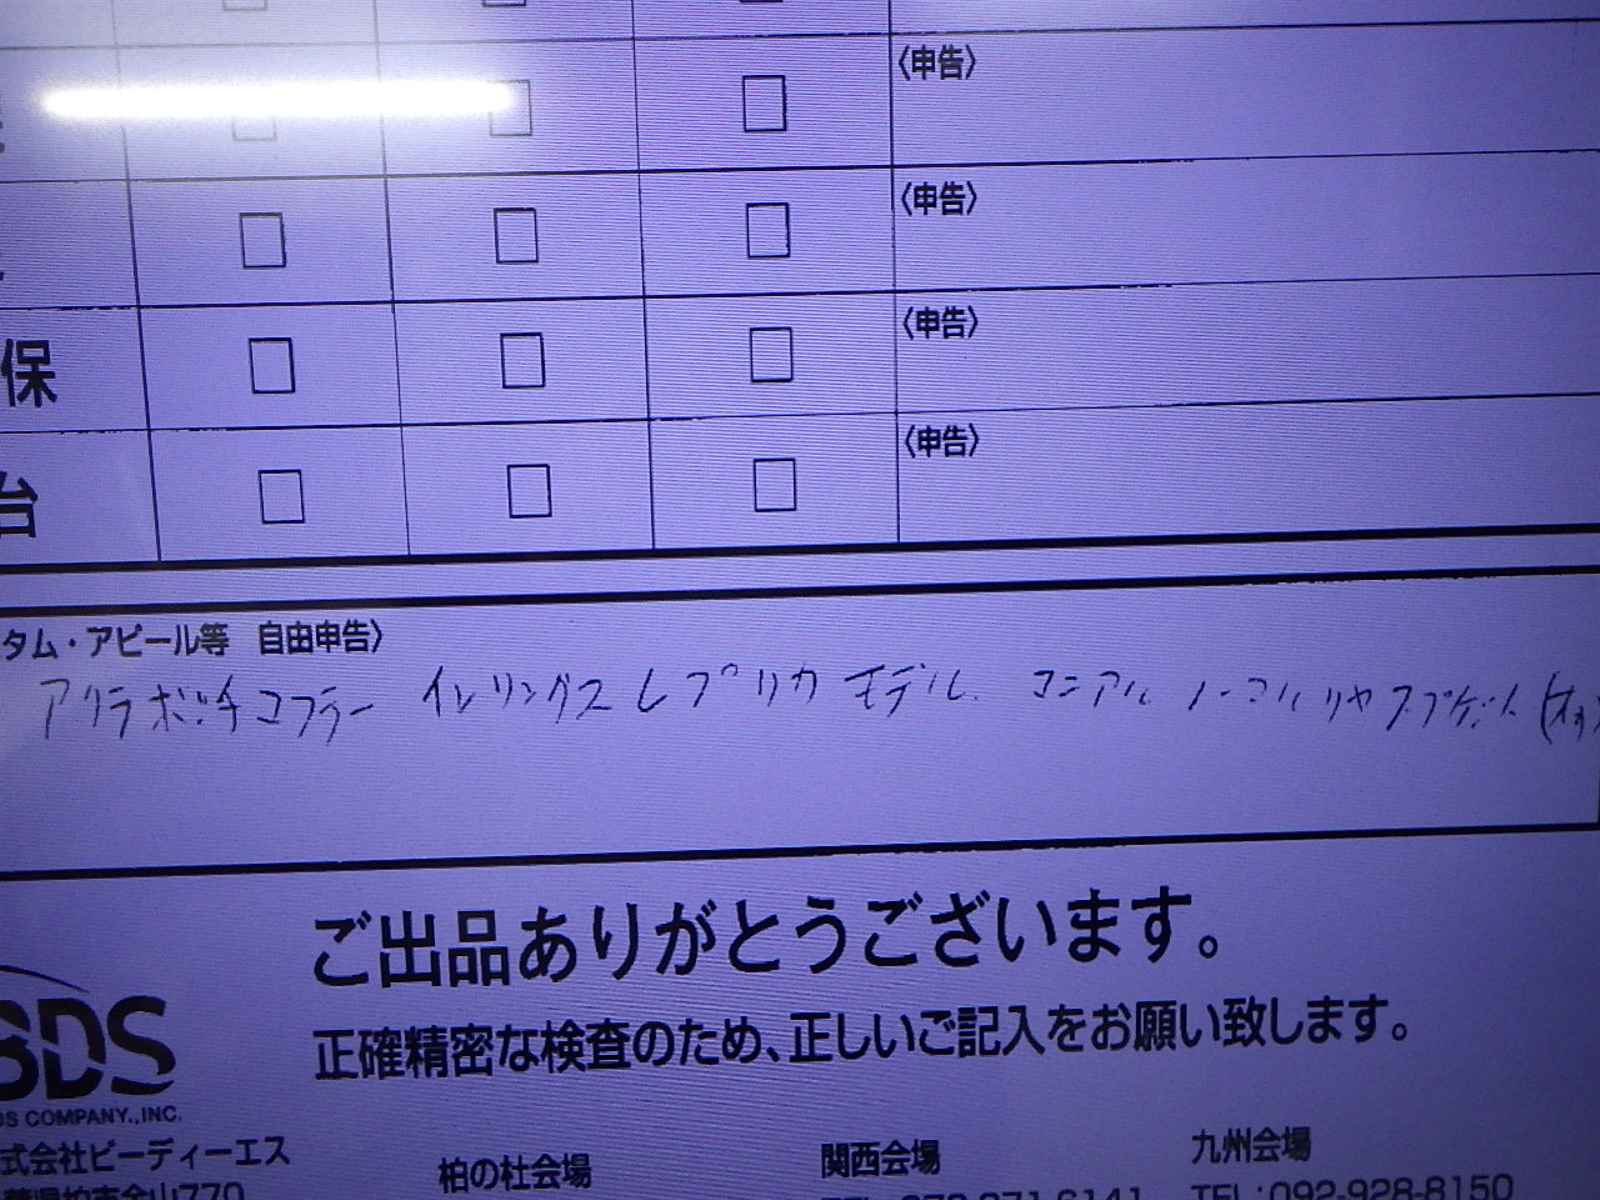 〈申告〉
〈申告〉
〈申告〉
保
〈申告〉
台
タム・アピール等 自由申告〉
アクラポビッチマフラー イレリングスレプリカモデル マニアル ノーマルリヤスプロケット
ご出品ありがとうございます。
正確精密な検査のため、正しいご記入をお願い致します。
BDS
DS COMPANY.,INC.
式会社ビーディーエス
柏の杜会場
関西会場
九州会場
TEL:092-928-8150